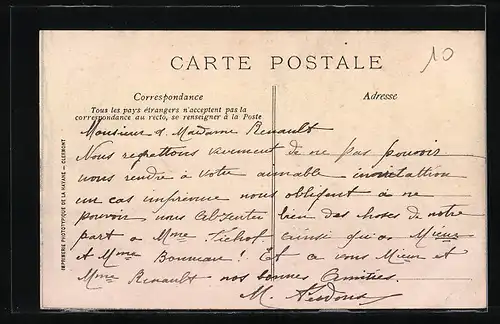 10
CARTE POSTALE
Correspondance
Adresse
Tous les pays étrangers n'acceptent pas la
correspondance au recto, se renseigner à la Poste
IMPRIMERIE PHOTOTYPIQUE DE LA HAVANE — CLERMONT
Monsieur & Madame Renault
Nous regrettons vivement de ne pas pouvoir
nous rendre à votre aimable invitattion
un cas imprévue nous obligent à ne
pouvoir nous absenter bien des choses de notre
part a Mme ainsi qu'a Mieur
et Mme Bonneau ! Et a vous Mieur et
Mme Renault nos bonnes Amitiés.
M.